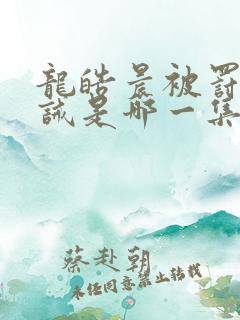 龍皓晨被罰
誡是哪一集
蔡赴朝
未经同意禁止转载